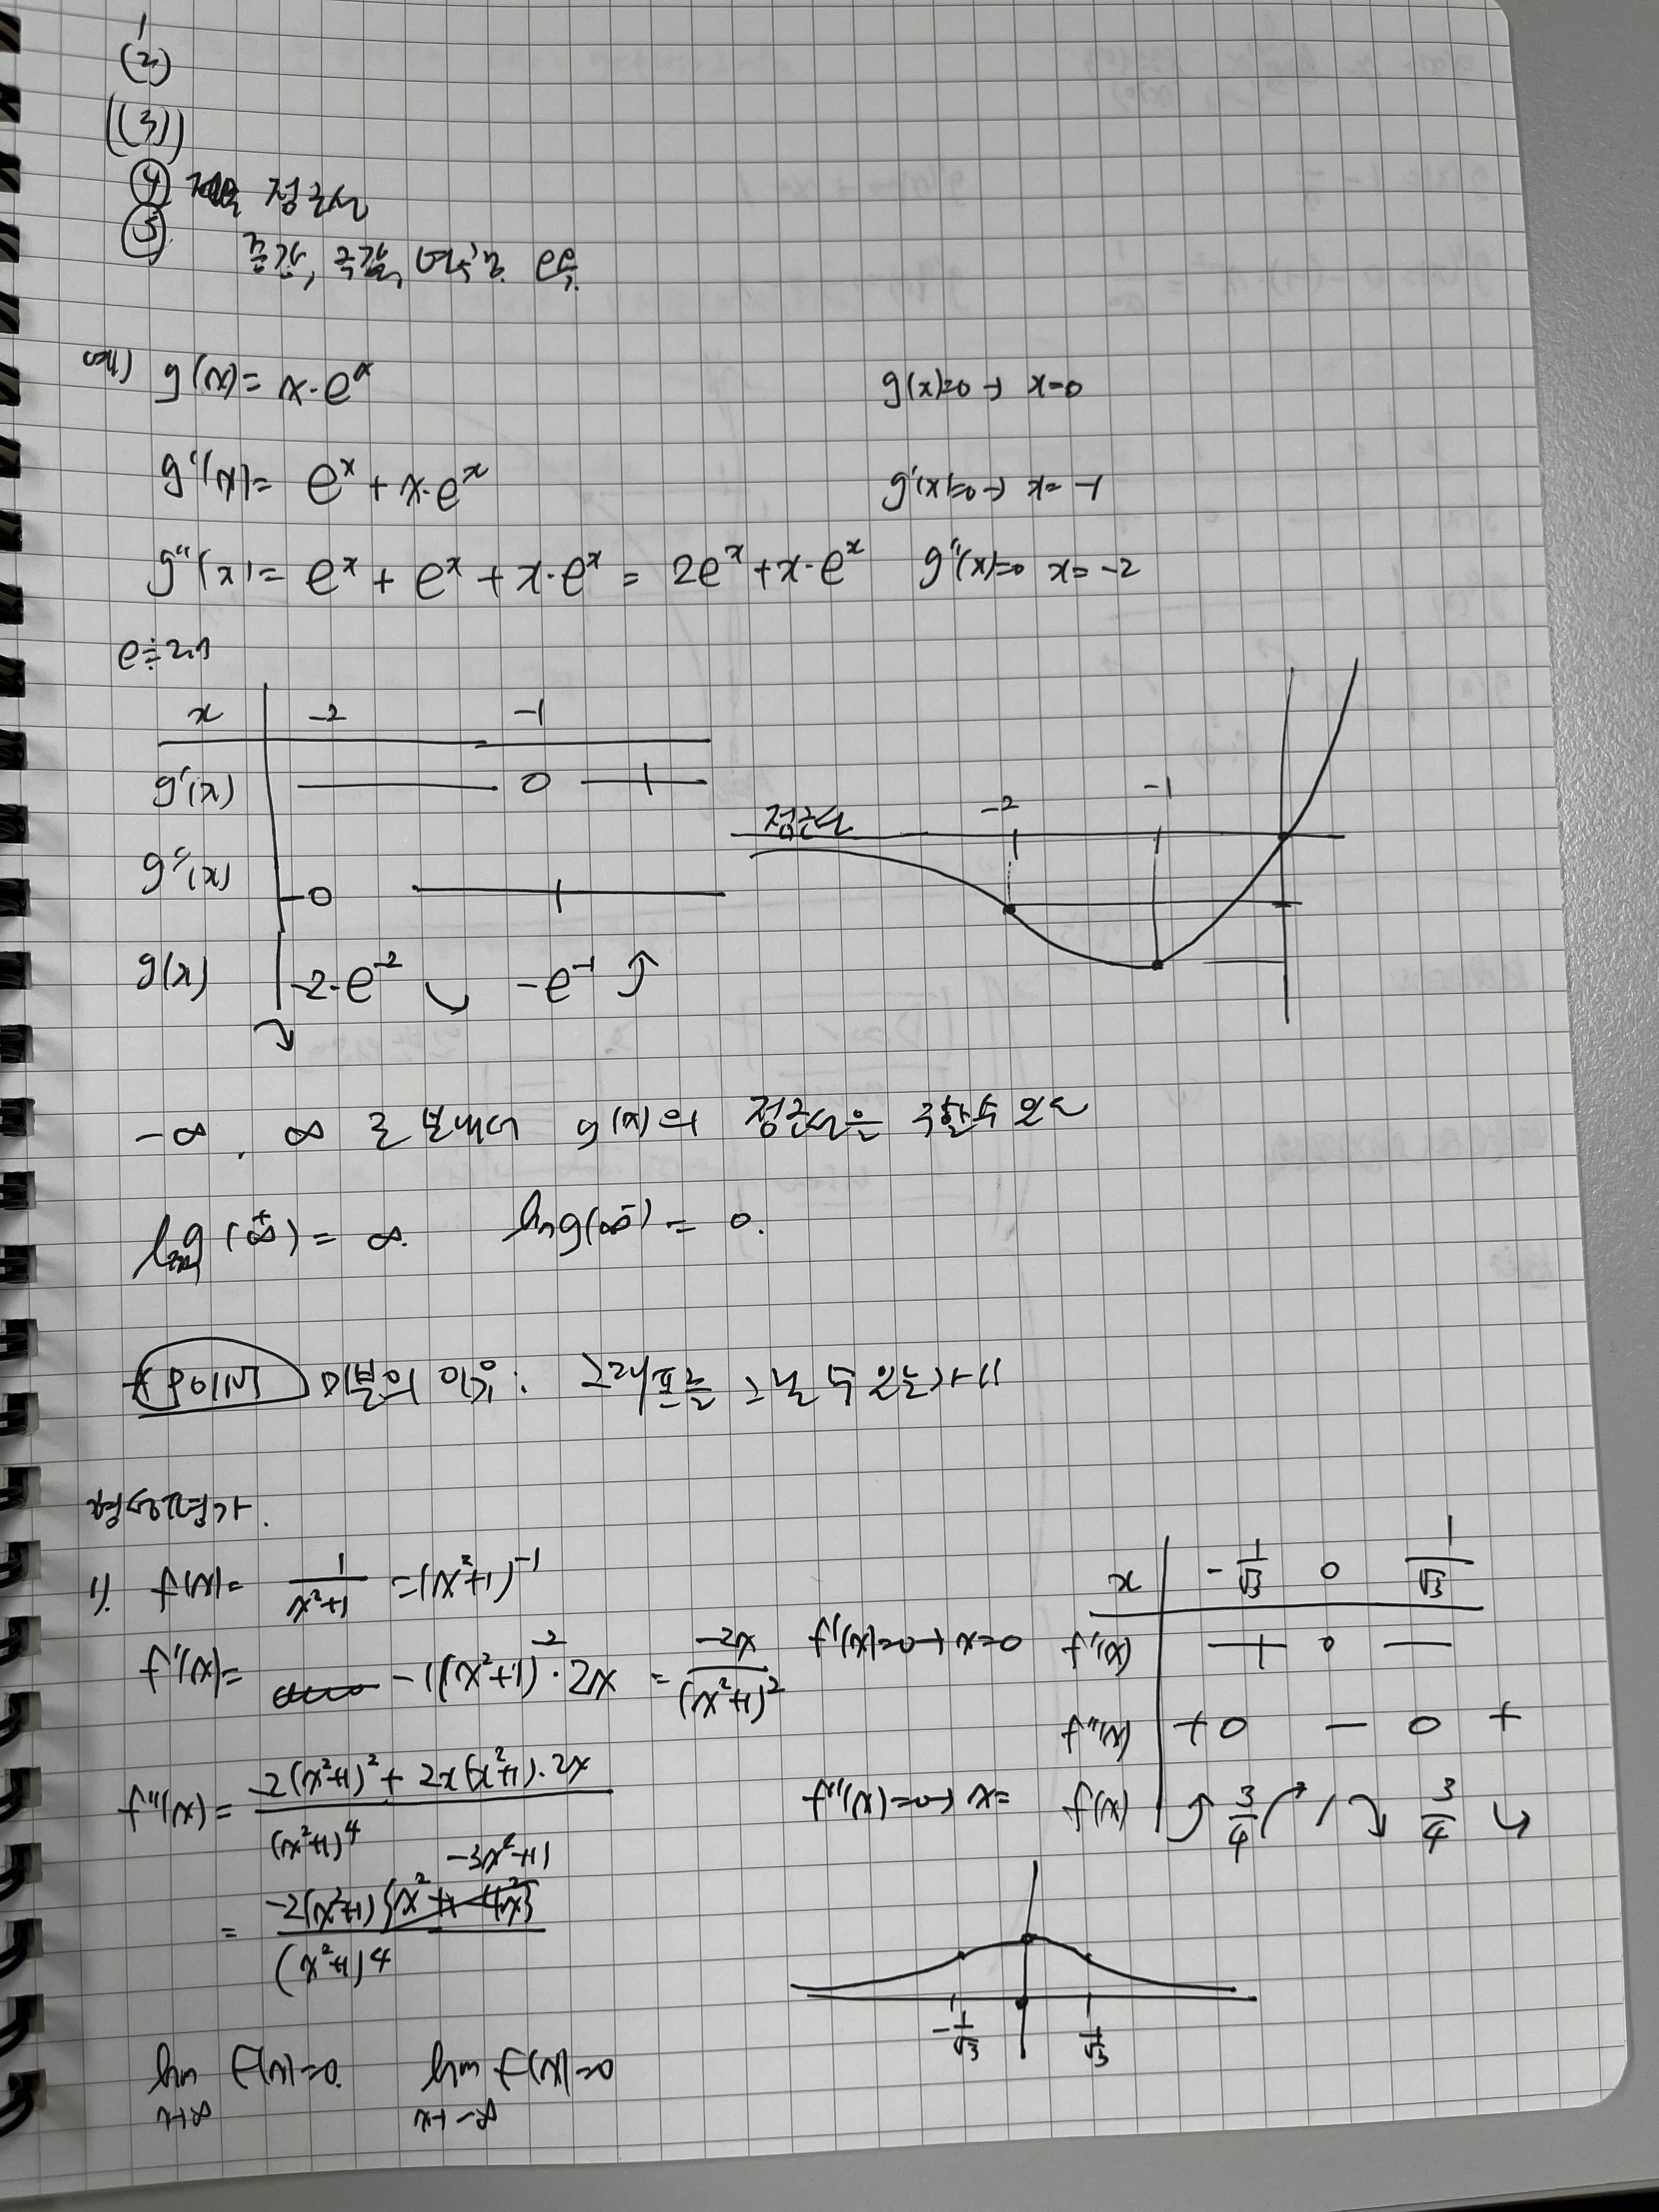 1
(2)
((3))
④ 점근선
⑤
증감, 극값, 변곡점, 오목.
예1) g(x) = x·eˣ g(x)=0 → x=0
g'(x) = eˣ + x·eˣ g'(x)=0 → x = -1
g''(x) = eˣ + eˣ + x·eˣ = 2eˣ + x·eˣ g''(x)=0 x = -2
x -2 -1
g'(x) — 0 +
g''(x) - 0 +
g(x) ⤵ -2·e⁻² ⤷ -e⁻¹ ⤴
점근선 -2 -1
-∞, ∞ 로 보내서 g(x)의 점근선은 구할 수 있음
= ∞. = 0.
★ POINT 미분의 이유: 그래프를 그릴 수 있는가!!
형성평가.
1). f(x) = 1/(x²+1) = (x²+1)⁻¹
f'(x) = -1(x²+1)⁻²·2x = -2x/(x²+1)² f'(x)=0 → x=0
f''(x) = (-2(x²+1)² + 2x(x²+1)·2x)/(x²+1)⁴ f''(x)=0 → x=
-3x²+1
= -2(x²+1){x²+1-4x²}/(x²+1)⁴
x -1/√3 0 1/√3
f'(x) + 0 —
f''(x) + 0 — 0 +
f(x) ⤴ 3/4 ↱ 1 ⤵ 3/4 ⤷
-1/√3 1/√3
lim x→∞ f(x)=0. lim x→-∞ f(x)=0